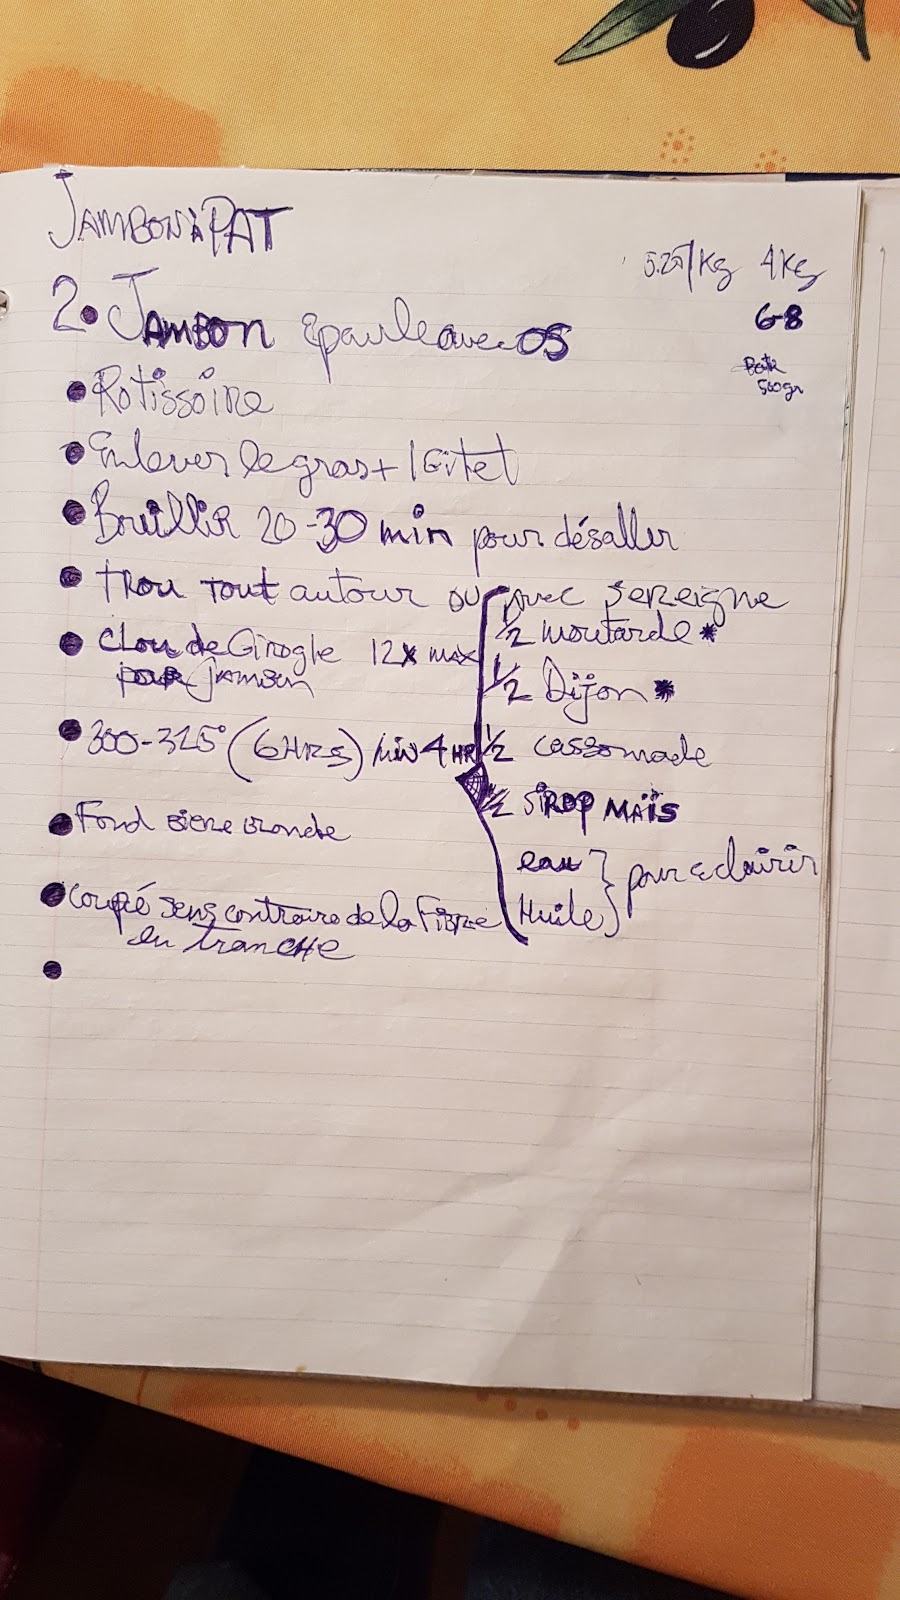 JAMBON à PAT
5.25/Kg 4Kg
2. JAMBON épaule avec OS
6-8
500gr
Rotissoire
Enlever le gras + l
Bouillir 20-30 min pour désaller
trou tout autour ou avec sereigne
1/2 moutarde *
Clou de Girogle 12x MAX
pour JAMBON
1/2 Dijon *
300-325° (6HRS) MIN 4 HR
1/2 cassonade
1/2 SIROP MAÏS
Fond Bière Blonde
eau } pour éclairir
Huile
coupé sens contraire de la Fibre
en tranche